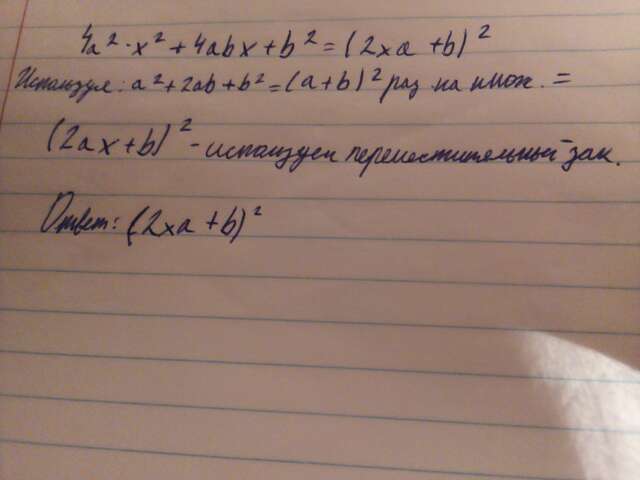 4a² · x² + 4abx + b² = (2xa + b)²
Используя: a² + 2ab + b² = (a + b)² раз на множ. =
(2ax + b)² - используем переместительный зак.
Ответ: (2xa + b)²